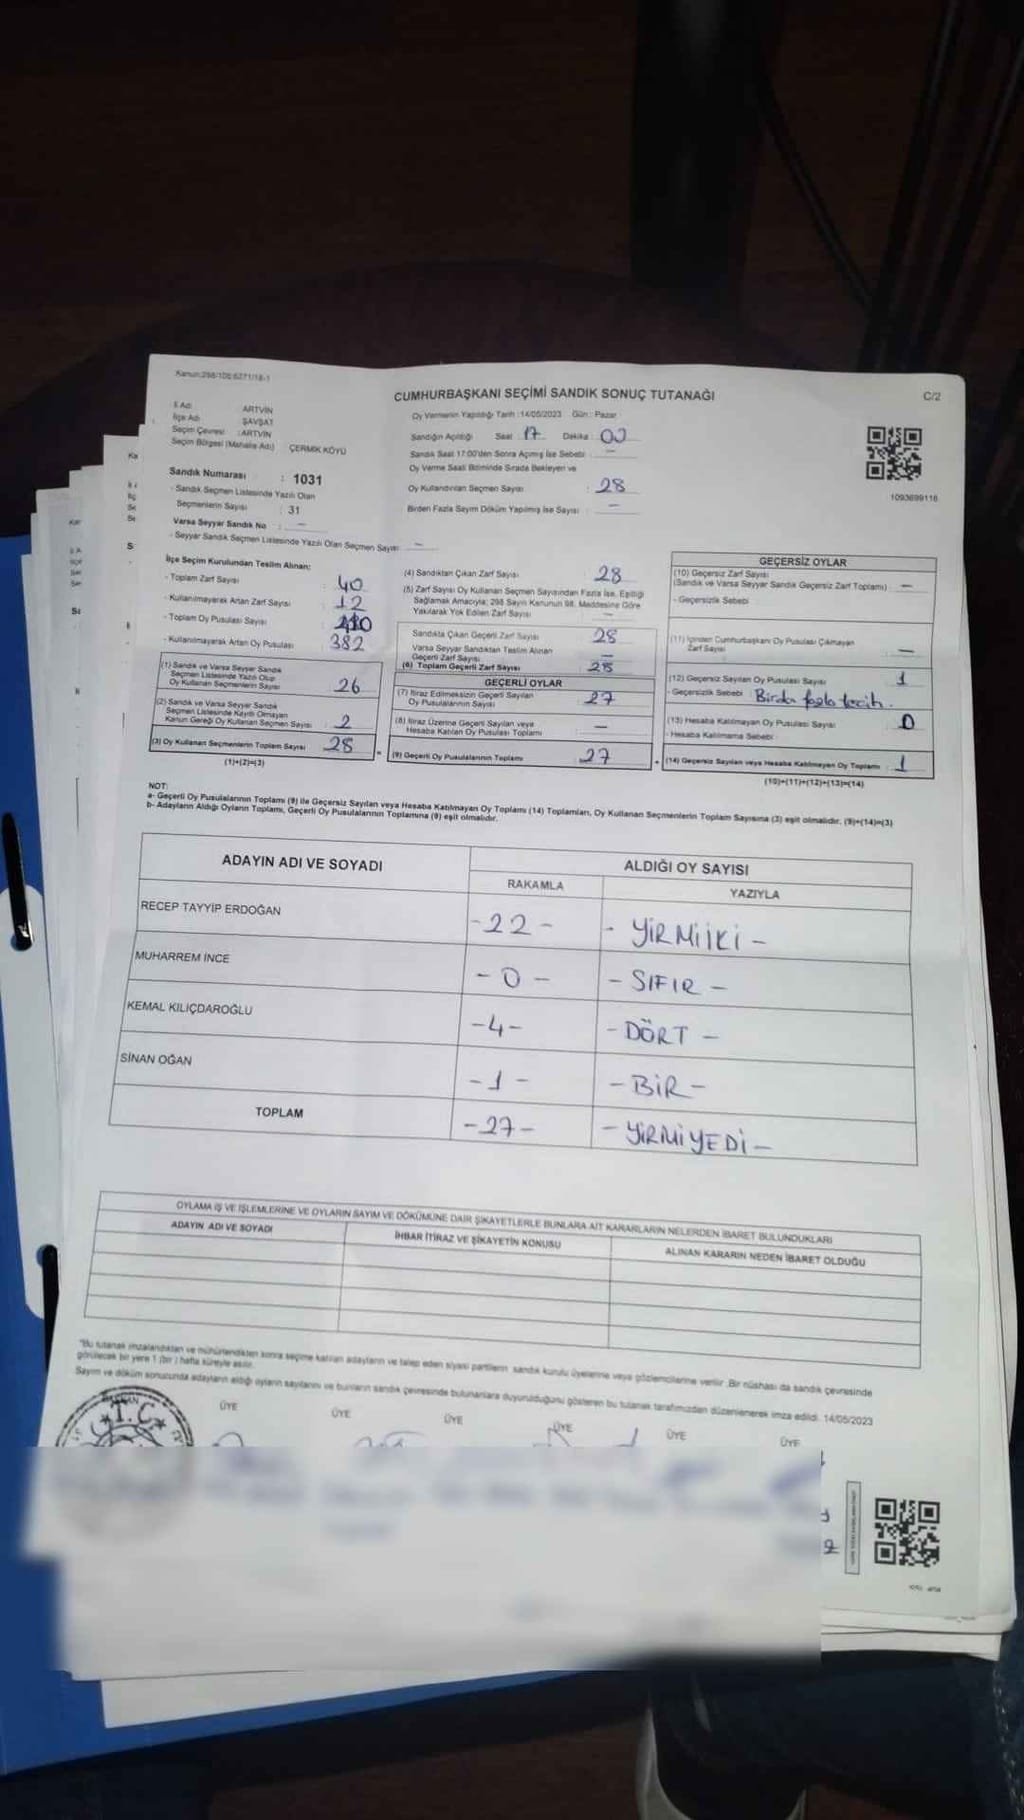 Kanun:298/105 6271/16-1
CUMHURBAŞKANI SEÇİMİ SANDIK SONUÇ TUTANAĞI
C/2
İl Adı ARTVİN
İlçe Adı ŞAVŞAT
Seçim Çevresi : ARTVİN
Seçim Bölgesi (Mahalle Adı) ÇERMİK KÖYÜ
Sandık Numarası : 1031
- Sandık Seçmen Listesinde Yazılı Olan
Seçmenlerin Sayısı : 31
Varsa Seyyar Sandık No : –
- Seyyar Sandık Seçmen Listesinde Yazılı Olan Seçmen Sayısı –
Oy Vermenin Yapıldığı Tarih :14/05/2023 Gün : Pazar
Sandığın Açıldığı Saat 17 Dakika 00
Sandık Saat 17:00'den Sonra Açılmış İse Sebebi : –
Oy Verme Saati Bitiminde Sırada Bekleyen ve
Oy Kullandırılan Seçmen Sayısı : 28
Birden Fazla Sayım Döküm Yapılmış İse Sayısı : –
1093699116
İlçe Seçim Kurulundan Teslim Alınan:
- Toplam Zarf Sayısı : 40
- Kullanılmayarak Artan Zarf Sayısı : 12
- Toplam Oy Pusulası Sayısı :
- Kullanılmayarak Artan Oy Pusulası : 382
(1) Sandık ve Varsa Seyyar Sandık
Seçmen Listesinde Yazılı Olup
Oy Kullanan Seçmenlerin Sayısı : 26
(2) Sandık ve Varsa Seyyar Sandık
Seçmen Listesinde Kayıtlı Olmayan
Kanun Gereği Oy Kullanan Seçmen Sayısı : 2
(3) Oy Kullanan Seçmenlerin Toplam Sayısı : 28
(1)+(2)=(3)
(4) Sandıktan Çıkan Zarf Sayısı : 28
(5) Zarf Sayısı Oy Kullanan Seçmen Sayısından Fazla İse, Eşitliği
Sağlamak Amacıyla; 298 Sayılı Kanunun 98. Maddesine Göre
Yakılarak Yok Edilen Zarf Sayısı : –
Sandıkta Çıkan Geçerli Zarf Sayısı : 28
Varsa Seyyar Sandıktan Teslim Alınan
Geçerli Zarf Sayısı : –
(6) Toplam Geçerli Zarf Sayısı : 28
GEÇERLİ OYLAR
(7) İtiraz Edilmeksizin Geçerli Sayılan
Oy Pusulasının Sayısı : 27
(8) İtiraz Üzerine Geçerli Sayılan veya
Hesaba Katılan Oy Pusulası Toplamı : –
(9) Geçerli Oy Pusulalarının Toplamı : 27
GEÇERSİZ OYLAR
(10) Geçersiz Zarf Sayısı
(Sandık ve Varsa Seyyar Sandık Geçersiz Zarf Toplamı) : –
- Geçersizlik Sebebi :
(11) İçinden Cumhurbaşkanı Oy Pusulası Çıkmayan
Zarf Sayısı : –
(12) Geçersiz Sayılan Oy Pusulası Sayısı : 1
- Geçersizlik Sebebi : Birden fazla tercih.
(13) Hesaba Katılmayan Oy Pusulası Sayısı : 0
- Hesaba Katılmama Sebebi :
(14) Geçersiz Sayılan veya Hesaba Katılmayan Oy Toplamı : 1
(10)+(11)+(12)+(13)=(14)
NOT:
a- Geçerli Oy Pusulalarının Toplamı (9) ile Geçersiz Sayılan veya Hesaba Katılmayan Oy Toplamı (14) Toplamları, Oy Kullanan Seçmenlerin Toplam Sayısına (3) eşit olmalıdır. (9)+(14)=(3)
b- Adayların Aldığı Oyların Toplamı, Geçerli Oy Pusulalarının Toplamına (9) eşit olmalıdır.
ADAYIN ADI VE SOYADI ALDIĞI OY SAYISI
RAKAMLA YAZIYLA
RECEP TAYYİP ERDOĞAN -22- - YİRMİİKİ -
MUHARREM İNCE -0- - SIFIR -
KEMAL KILIÇDAROĞLU -4- - DÖRT -
SİNAN OĞAN -1- - BİR -
TOPLAM -27- - YİRMİYEDİ -
OYLAMA İŞ VE İŞLEMLERİNE VE OYLARIN SAYIM VE DÖKÜMÜNE DAİR ŞİKAYETLERLE BUNLARA AİT KARARLARIN NELERDEN İBARET BULUNDUKLARI
ADAYIN ADI VE SOYADI İHBAR İTİRAZ VE ŞİKAYETİN KONUSU ALINAN KARARIN NEDEN İBARET OLDUĞU
"Bu tutanak imzalandıktan ve mühürlendikten sonra seçime katılan adayların ve talep eden siyasi partilerin sandık kurulu üyelerine veya gözlemcilerine verilir. Bir nüshası da sandık çevresinde
görülecek bir yere 1 (bir ) hafta süreyle asılır.
Sayım ve döküm sonucunda adayların aldığı oyların sayılarını ve bunların sandık çevresinde bulunanlara duyurulduğunu gösteren bu tutanak tarafımızdan düzenlenerek imza edildi. 14/05/2023
T.C.
ÜYE ÜYE ÜYE ÜYE ÜYE ÜYE